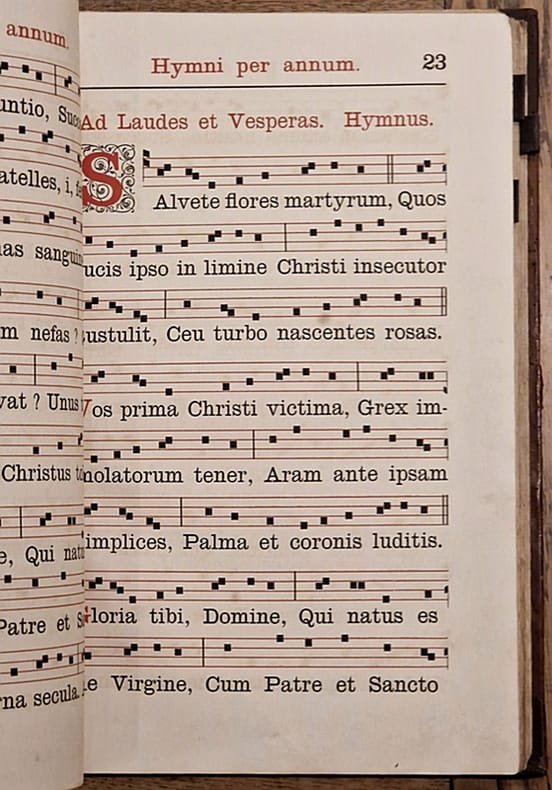 annum.
untio,
atelles, i,
as
m nefas ?
vat ? Unus
Christus
e, Qui
Patre et
na secula.
Hymni per annum. 23
Ad Laudes et Vesperas. Hymnus.
SAlvete flores martyrum, Quos
ucis ipso in limine Christi insecutor
ustulit, Ceu turbo nascentes rosas.
Vos prima Christi victima, Grex im-
molatorum tener, Aram ante ipsam
implices, Palma et coronis luditis.
Gloria tibi, Domine, Qui natus es
e Virgine, Cum Patre et Sancto